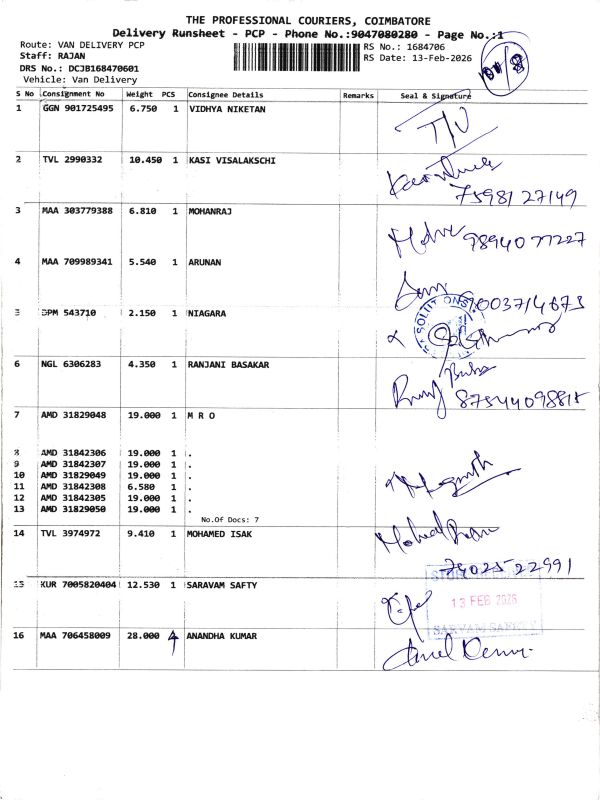 THE PROFESSIONAL COURIERS, COIMBATORE
Delivery Runsheet - PCP - Phone No.:9047080280 - Page No.:1
Route: VAN DELIVERY PCP
Staff: RAJAN
DRS No.: DCJB168470601
Vehicle: Van Delivery
RS No.: 1684706
RS Date: 13-Feb-2026
S No Consignment No Weight PCS Consignee Details Remarks Seal & Signature
1 GGN 901725495 6.750 1 VIDHYA NIKETAN
2 TVL 2990332 10.450 1 KASI VISALAKSCHI
75981 27149
3 MAA 303779388 6.810 1 MOHANRAJ
9894077227
4 MAA 709989341 5.540 1 ARUNAN
9003714673
5 DPM 543710 2.150 1 NIAGARA
SOLUTIONS
6 NGL 6306283 4.350 1 RANJANI BASAKAR
7 AMD 31829048 19.000 1 M R O
8 AMD 31842306 19.000 1 .
9 AMD 31842307 19.000 1 .
10 AMD 31829049 19.000 1 .
11 AMD 31842308 6.580 1 .
12 AMD 31842305 19.000 1 .
13 AMD 31829050 19.000 1 .
No.Of Docs: 7
14 TVL 3974972 9.410 1 MOHAMED ISAK
74025 22991
15 KUR 7005820404 12.530 1 SARAVAM SAFTY
13 FEB 2026
16 MAA 706458009 28.000 4 ANANDHA KUMAR